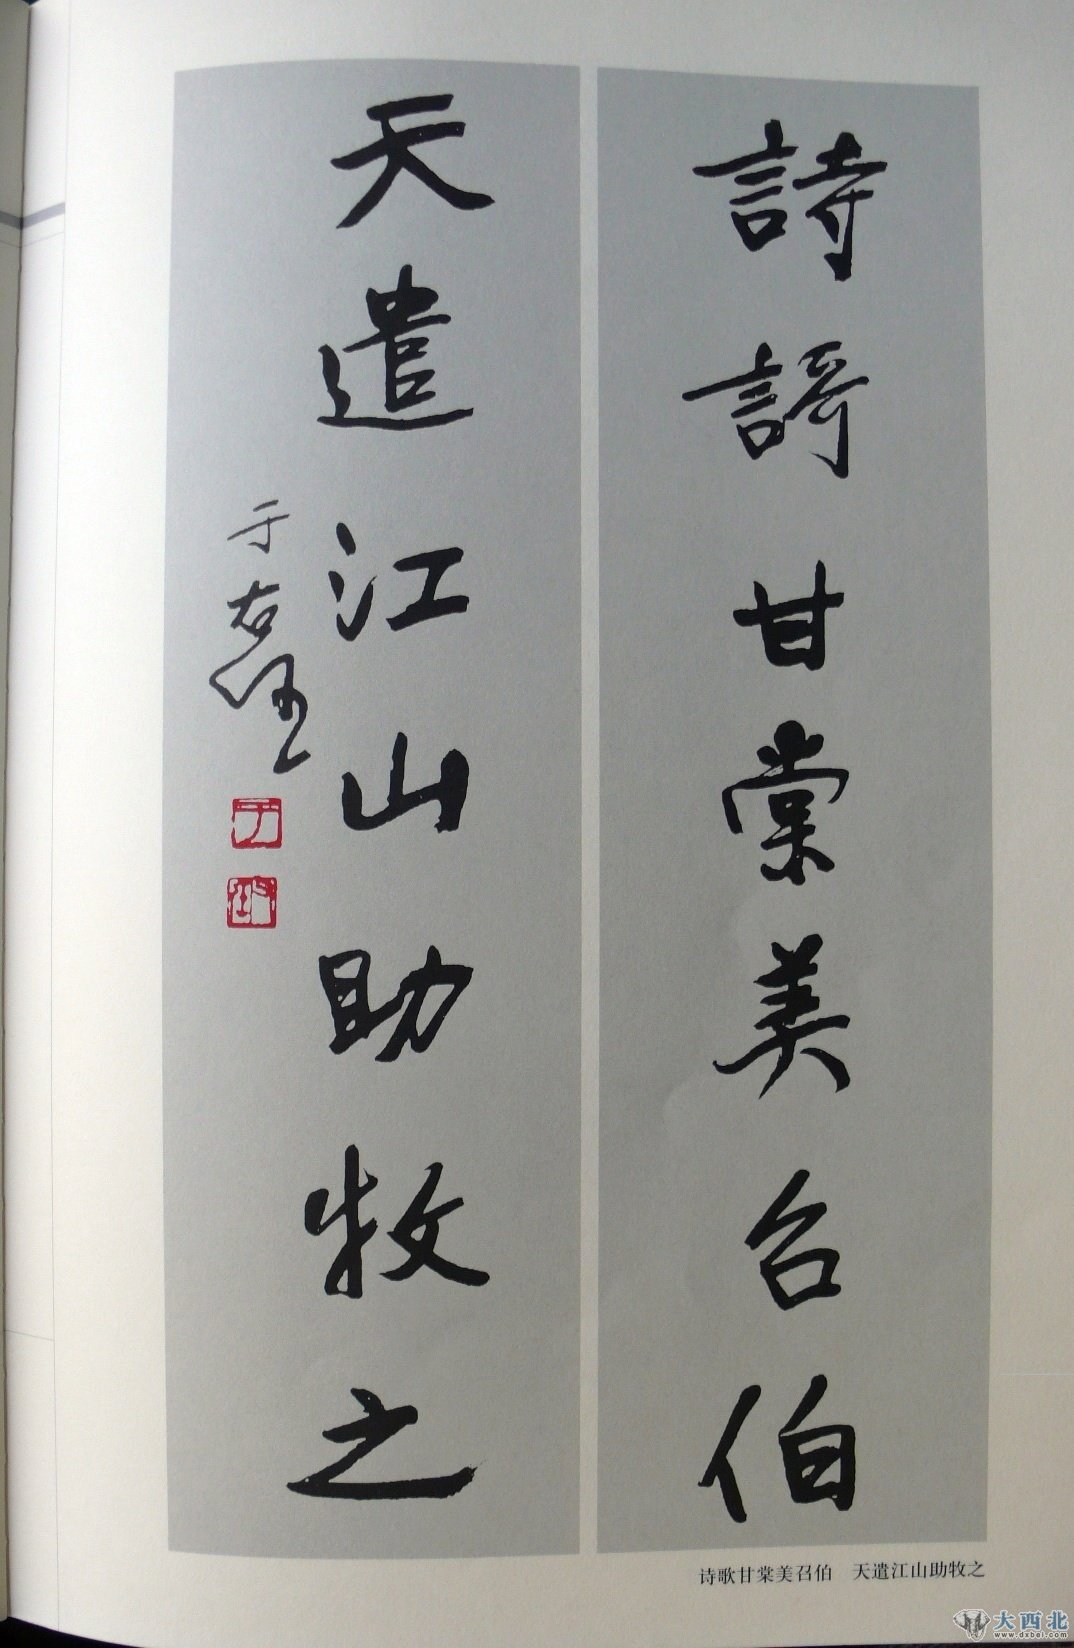 詩謌甘棠美召伯
天遣江山助牧之
于右任
诗歌甘棠美召伯　天遣江山助牧之
大西北
www.dxbei.com